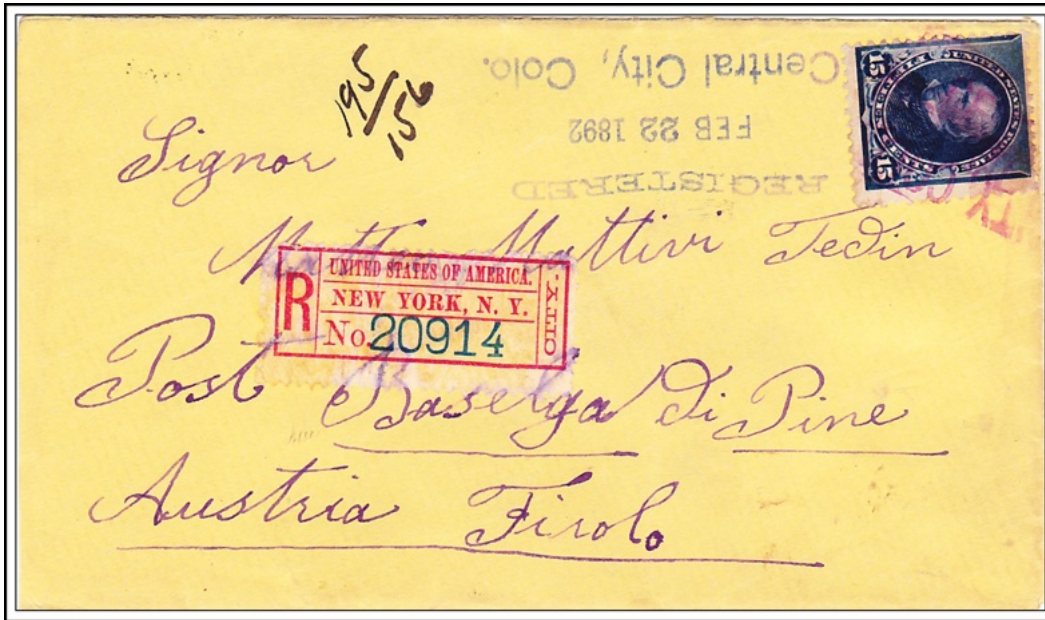 195/156
Central City, Colo.
FEB 22 1892
REGISTERED
UNITED STATES POSTAGE
15 15
TY COL
Signor
Mattivi Tedin
R
UNITED STATES OF AMERICA.
NEW YORK, N. Y.
No. 20914
CITY.
Post Baselga Di Pine
Austria Tirolo